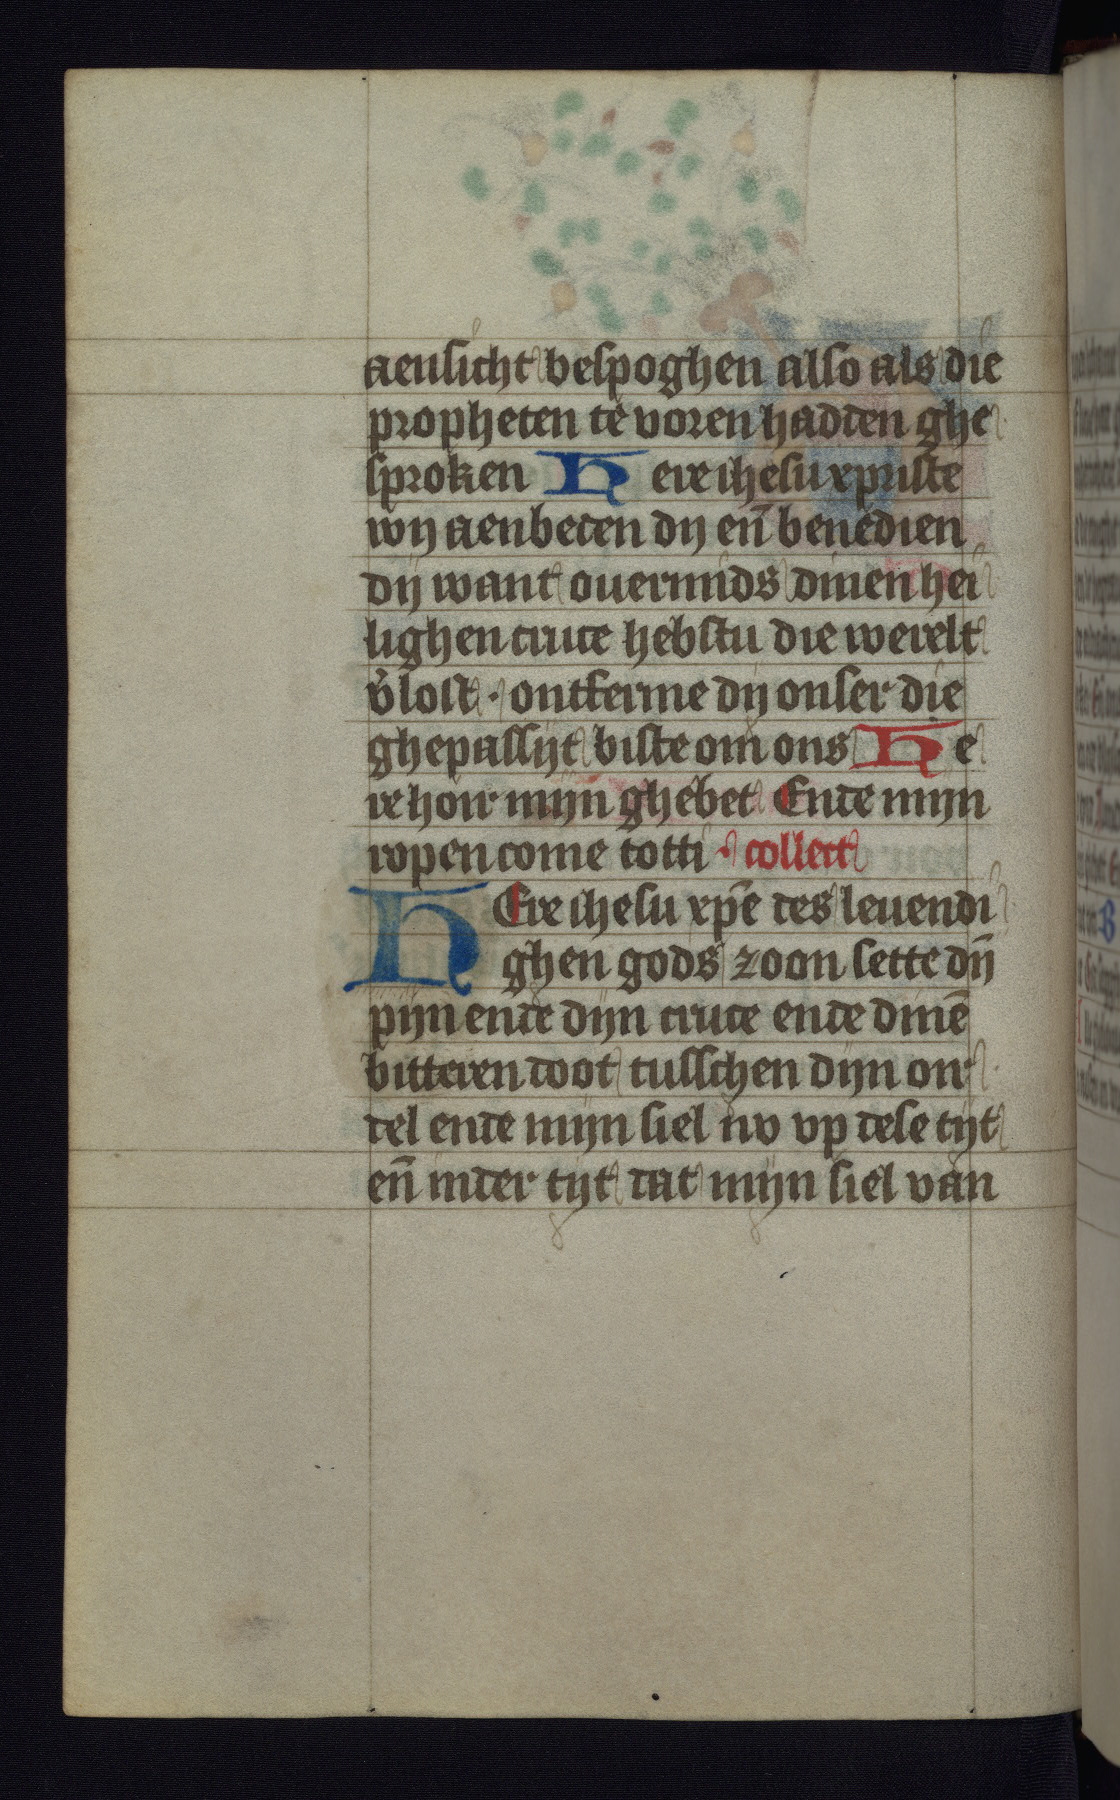 aensicht bespoghen also als die
propheten te voren hadden ghe
sproken Here ihesu xpriste
wij aenbeden dij en̄ benedien
dij want ouermids dinen hei
lighen cruce hebstu die werelt
v̉lost · ontferme dij onser die
ghepassijt biste om ons He
re hoir mijn ghebet Ende mijn
ropen come totti · collect
HEre ihesu xp̄e des leuendi
ghen gods zoon sette dijn̄
pijn ende dijn cruce ende dinē
bitteren doot tusschen dijn oir
del ende mijn siel nv vp dese tijt
en̄ inder tijt dat mijn siel van